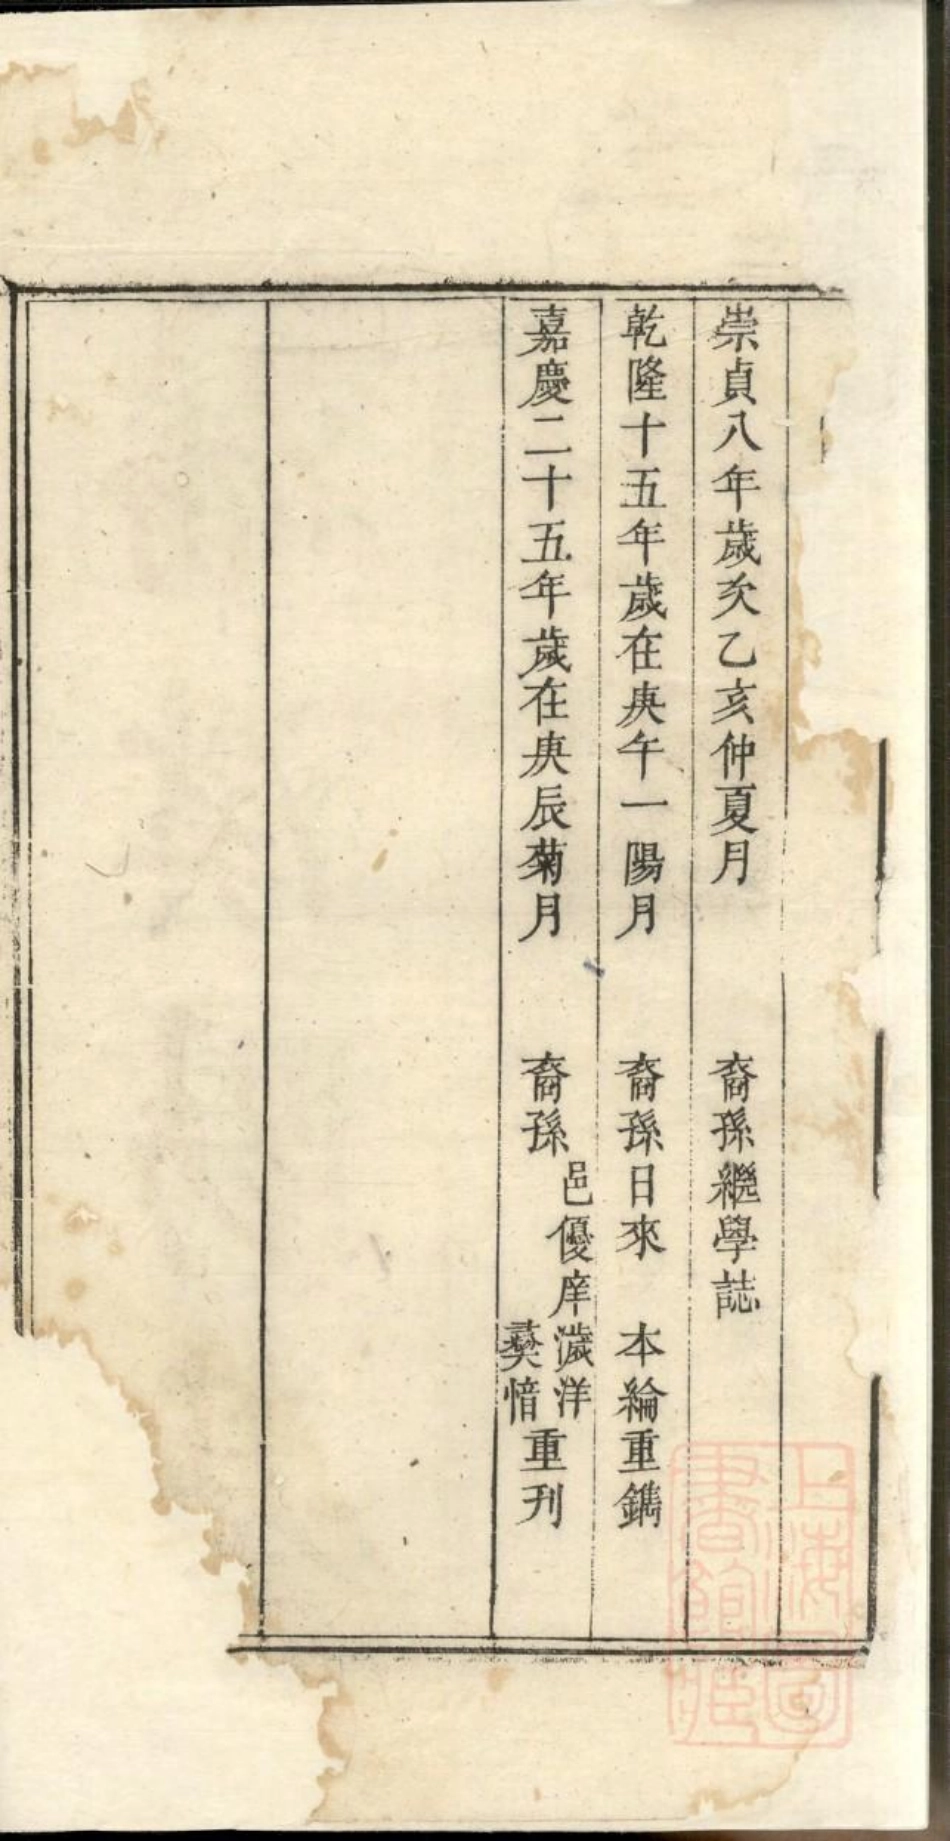 崇貞八年歲次乙亥仲夏月　裔孫繼學誌
乾隆十五年歲在庚午一陽月　裔孫日來　本綸重鐫
嘉慶二十五年歲在庚辰菊月　裔孫邑優庠
濊洋
愔
重刊
上海圖書館藏